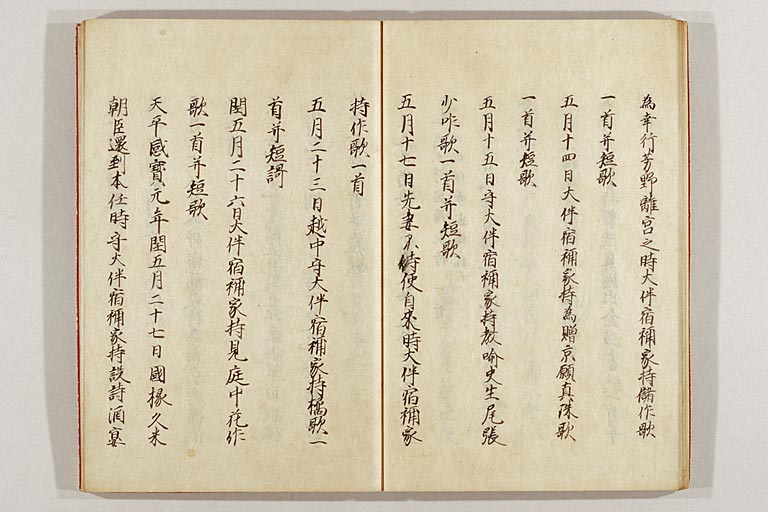 為幸行芳野離宮之時大伴宿祢家持儲作歌
一首并短歌
五月十四日大伴宿祢家持為贈京願真珠歌
一首并短歌
五月十五日守大伴宿祢家持教喩史生尾張
少咋歌一首并短歌
五月十七日先妻不待使自来時大伴宿祢家
持作歌一首
五月二十三日越中守大伴宿祢家持橘歌一
首并短謌
閏五月二十六日大伴宿祢家持見庭中花作
歌一首并短歌
天平感寳元年閏五月二十七日國掾久米
朝臣還到本任時守大伴宿祢家持設詩酒宴